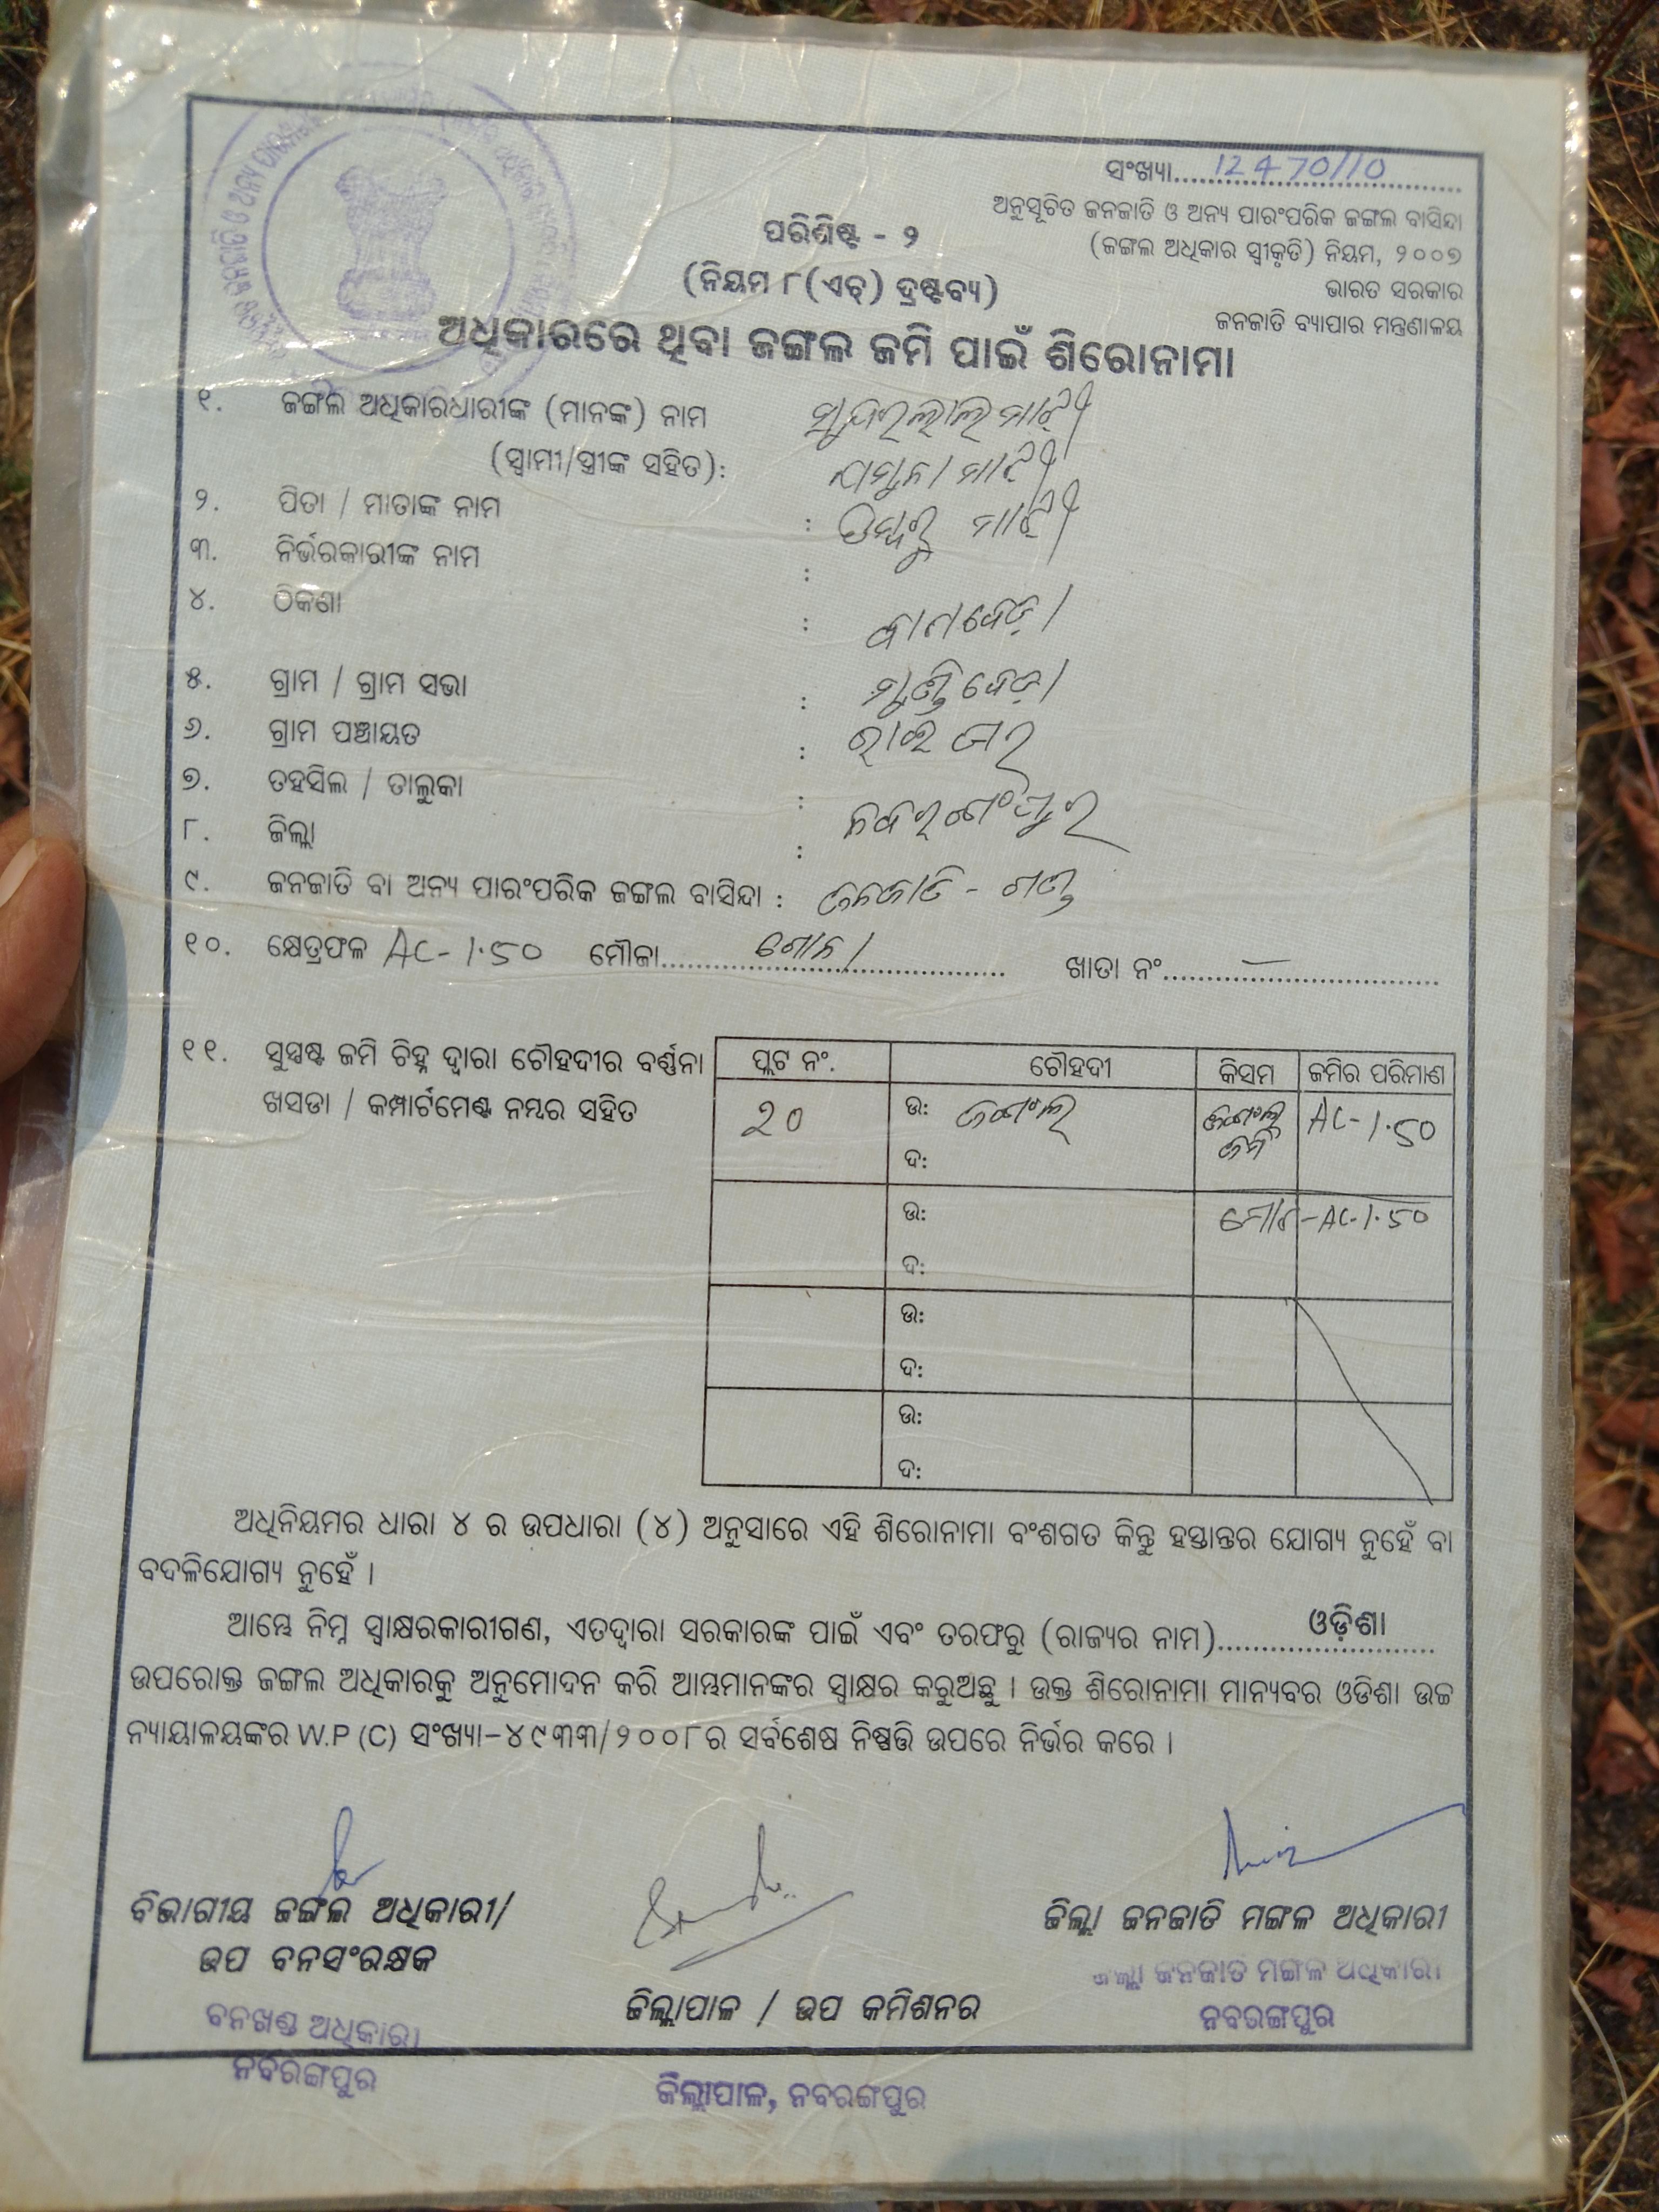 ସଂଖ୍ୟା.... 12470/10
ଅନୁସୂଚିତ ଜନଜାତି ଓ ଅନ୍ୟ ପାରଂପରିକ ଜଙ୍ଗଲ ବାସିନ୍ଦା
(ଜଙ୍ଗଲ ଅଧିକାର ସ୍ୱୀକୃତି) ନିୟମ, ୨୦୦୭
ଭାରତ ସରକାର
ଜନଜାତି ବ୍ୟାପାର ମନ୍ତ୍ରଣାଳୟ
ପରିଶିଷ୍ଟ - ୨
(ନିୟମ ୮(ଏଚ୍) ଦ୍ରଷ୍ଟବ୍ୟ)
ଅଧିକାରରେ ଥିବା ଜଙ୍ଗଲ ଜମି ପାଇଁ ଶିରୋନାମା
୧. ଜଙ୍ଗଲ ଅଧିକାରଧାରୀଙ୍କ (ମାନଙ୍କ) ନାମ ସୁନ୍ଦରଲାଲ ମାଝି
(ସ୍ୱାମୀ/ସ୍ତ୍ରୀଙ୍କ ସହିତ): ଯମୁନା ମାଝି
୨. ପିତା / ମାତାଙ୍କ ନାମ : ମାଝି
୩. ନିର୍ଭରକାରୀଙ୍କ ନାମ :
୪. ଠିକଣା :
୫. ଗ୍ରାମ / ଗ୍ରାମ ସଭା :
୬. ଗ୍ରାମ ପଞ୍ଚାୟତ :
୭. ତହସିଲ / ତାଲୁକା : ରାଇଘର
୮. ଜିଲ୍ଲା : ନବରଙ୍ଗପୁର
୯. ଜନଜାତି ବା ଅନ୍ୟ ପାରଂପରିକ ଜଙ୍ଗଲ ବାସିନ୍ଦା : ଜନଜାତି - ଗଣ୍ଡ
୧୦. କ୍ଷେତ୍ରଫଳ AC-1.50 ମୌଜା.... ଖାତା ନଂ.... —
୧୧. ସୁସ୍ପଷ୍ଟ ଜମି ଚିହ୍ନ ଦ୍ୱାରା ଚୌହଦୀର ବର୍ଣ୍ଣନା
ଖସଡା / କମ୍ପାର୍ଟମେଣ୍ଟ ନମ୍ବର ସହିତ
ପ୍ଲଟ ନଂ. ଚୌହଦୀ କିସମ ଜମିର ପରିମାଣ
୨୦ ଉ: ଜଙ୍ଗଲ ଜଙ୍ଗଲ ଜମି AC-1.50
ଦ:
ଉ: ମୋଟ-AC-1.50
ଦ:
ଉ:
ଦ:
ଉ:
ଦ:
ଅଧିନିୟମର ଧାରା ୪ ର ଉପଧାରା (୪) ଅନୁସାରେ ଏହି ଶିରୋନାମା ବଂଶଗତ କିନ୍ତୁ ହସ୍ତାନ୍ତର ଯୋଗ୍ୟ ନୁହେଁ ବା
ବଦଳିଯୋଗ୍ୟ ନୁହେଁ ।
ଆମ୍ଭେ ନିମ୍ନ ସ୍ୱାକ୍ଷରକାରୀଗଣ, ଏତଦ୍ୱାରା ସରକାରଙ୍କ ପାଇଁ ଏବଂ ତରଫରୁ (ରାଜ୍ୟର ନାମ).... ଓଡ଼ିଶା
ଉପରୋକ୍ତ ଜଙ୍ଗଲ ଅଧିକାରକୁ ଅନୁମୋଦନ କରି ଆମ୍ଭମାନଙ୍କର ସ୍ୱାକ୍ଷର କରୁଅଛୁ । ଉକ୍ତ ଶିରୋନାମା ମାନ୍ୟବର ଓଡିଶା ଉଚ୍ଚ
ନ୍ୟାୟାଳୟଙ୍କର W.P (C) ସଂଖ୍ୟା-୪୯୩୩/୨୦୦୮ର ସର୍ବଶେଷ ନିଷ୍ପତ୍ତି ଉପରେ ନିର୍ଭର କରେ ।
ବିଭାଗୀୟ ଜଙ୍ଗଲ ଅଧିକାରୀ/
ଉପ ବନସଂରକ୍ଷକ
ବନଖଣ୍ଡ ଅଧିକାରୀ
ନବରଙ୍ଗପୁର
ଜିଲ୍ଲାପାଳ / ଉପ କମିଶନର
ଜିଲ୍ଲାପାଳ, ନବରଙ୍ଗପୁର
ଜିଲ୍ଲା ଜନଜାତି ମଙ୍ଗଳ ଅଧିକାରୀ
ଜିଲ୍ଲା ଜନଜାତି ମଙ୍ଗଳ ଅଧିକାରୀ
ନବରଙ୍ଗପୁର